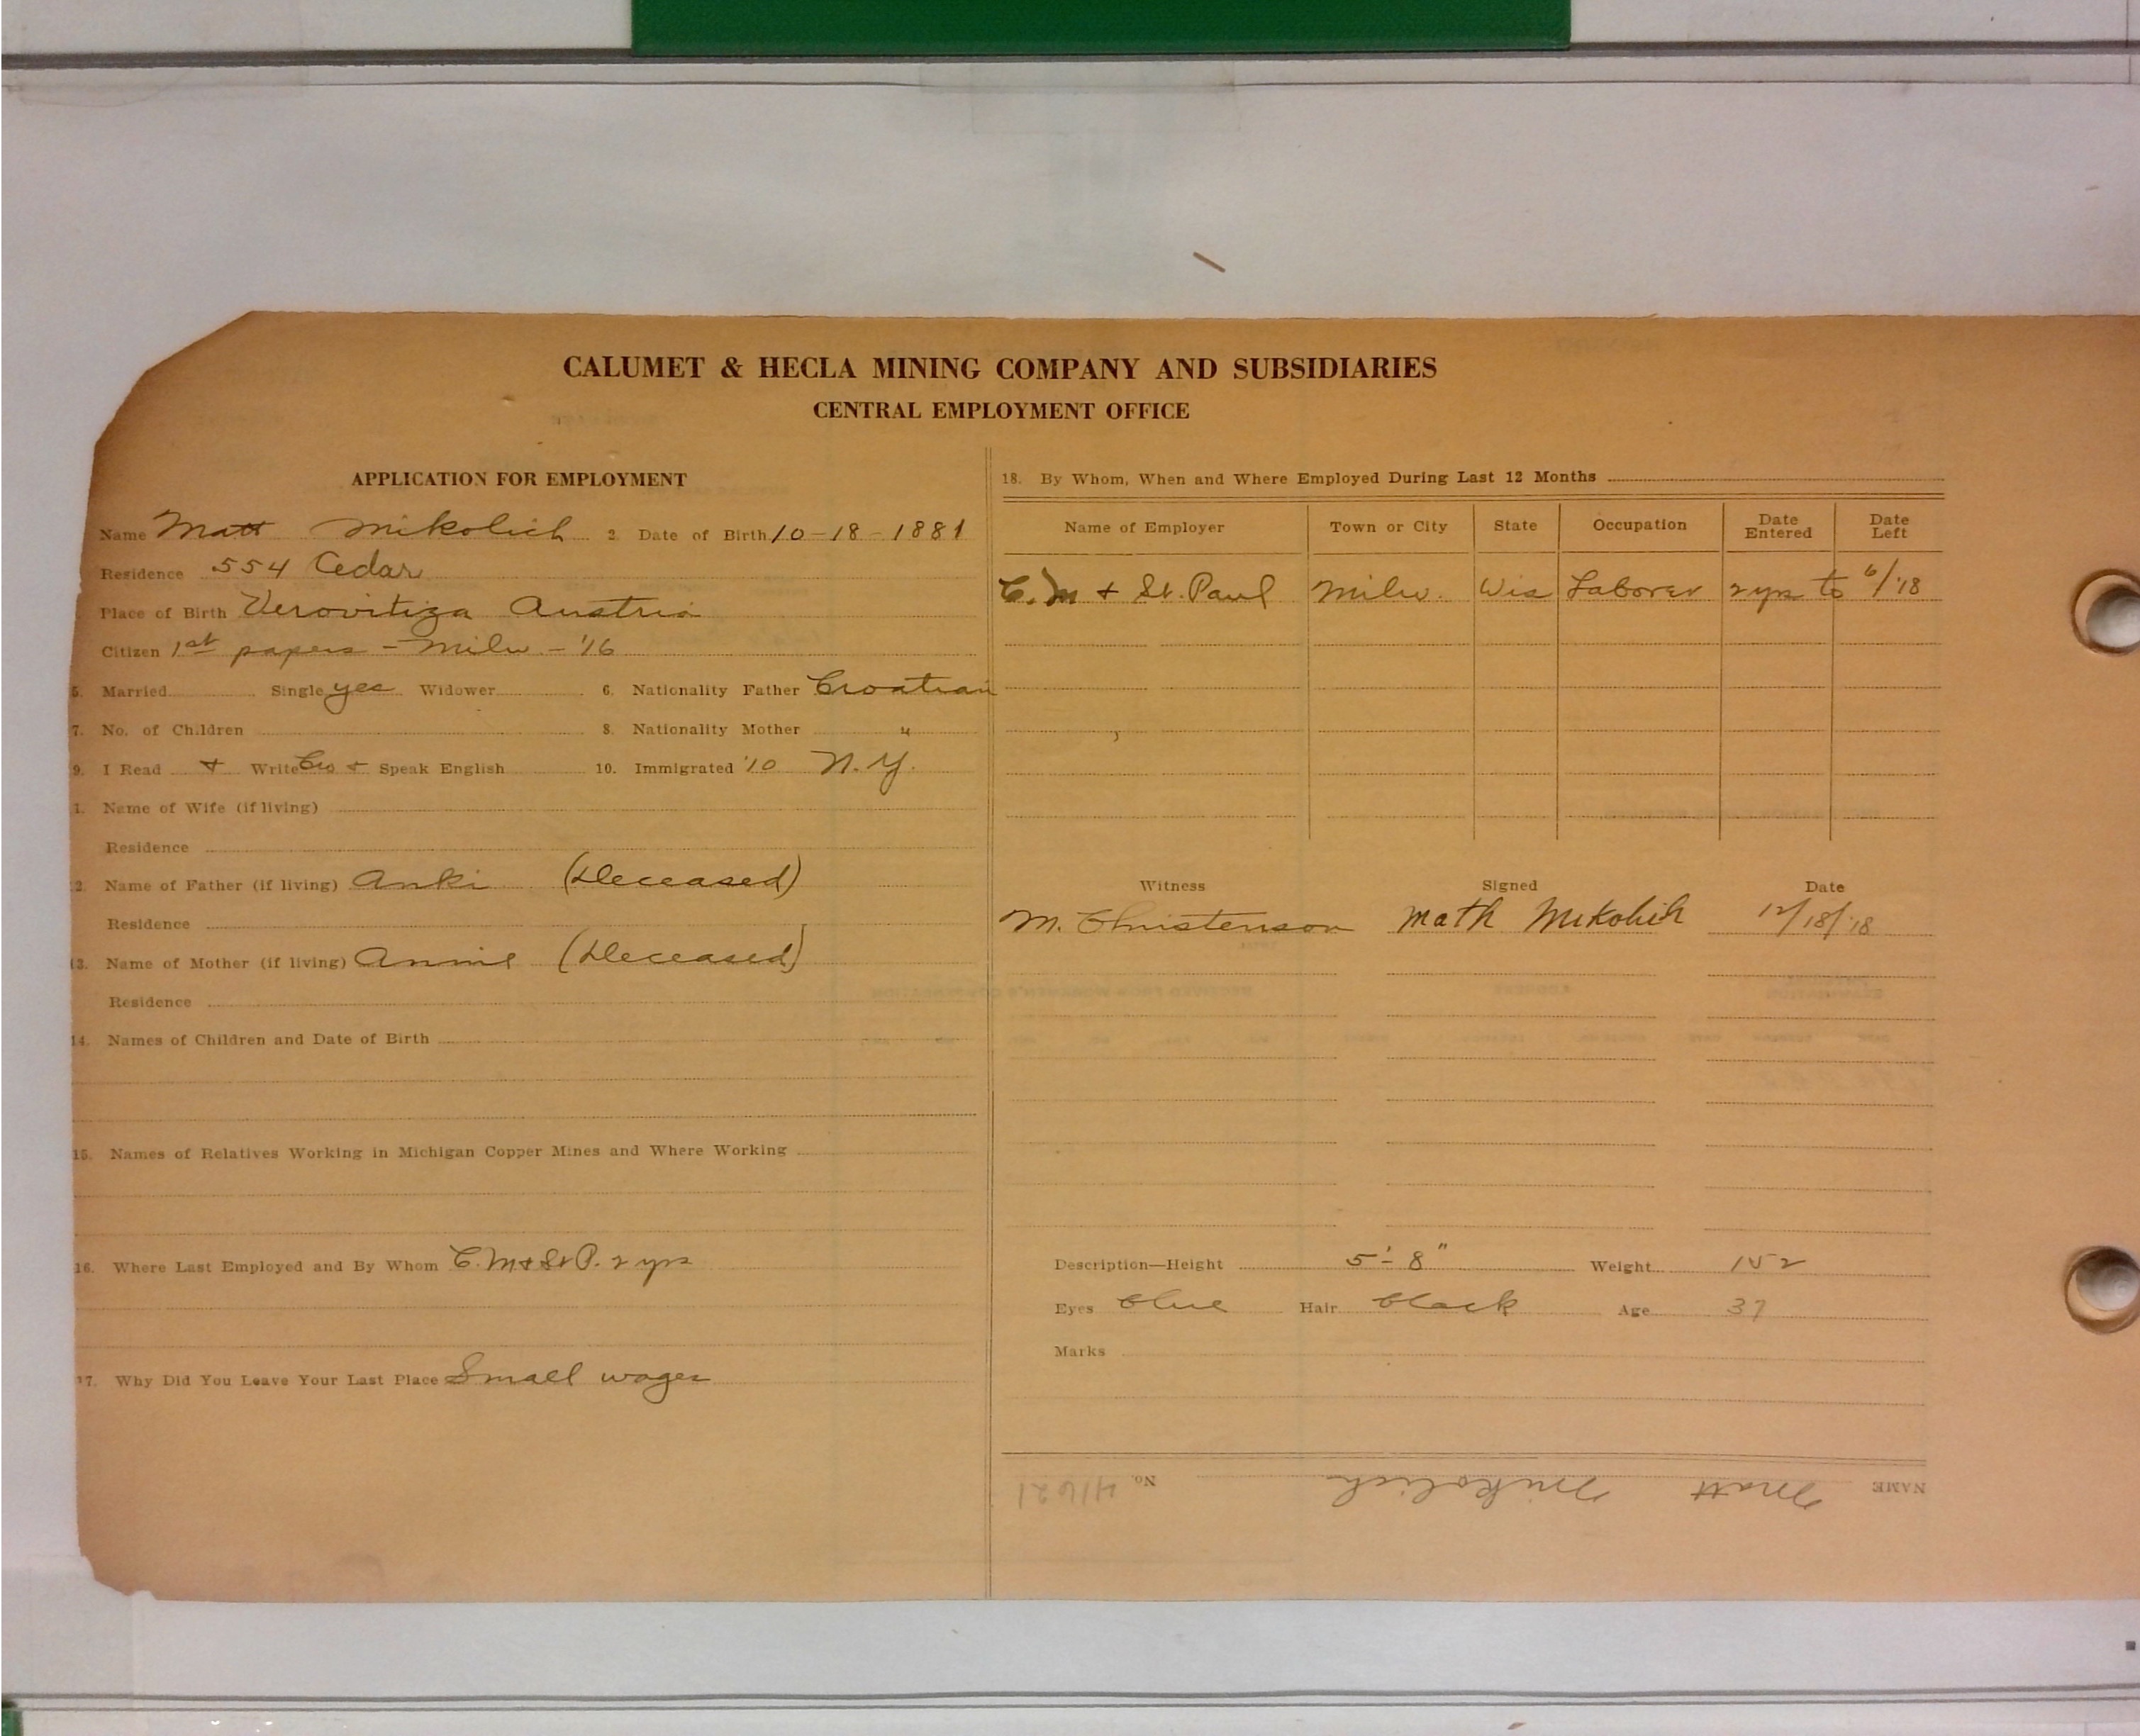 CALUMET & HECLA MINING COMPANY AND SUBSIDIARIES
CENTRAL EMPLOYMENT OFFICE
APPLICATION FOR EMPLOYMENT
Name Matt Mikolich 2 Date of Birth 10-18-1881
Residence 554 Cedar
Place of Birth Verovitiza Austria
Citizen 1st papers - Milw - '16
5. Married Single yes Widower 6. Nationality Father Croatian
7. No. of Children 8. Nationality Mother "
9. I Read + Write Cro + Speak English 10. Immigrated '10 N.Y.
1. Name of Wife (if living)
Residence
2. Name of Father (if living) Anki (Deceased)
Residence
13. Name of Mother (if living) Annie (Deceased)
Residence
14. Names of Children and Date of Birth
15. Names of Relatives Working in Michigan Copper Mines and Where Working
16. Where Last Employed and By Whom C.M + St P. 2 yrs
17. Why Did You Leave Your Last Place Small wages
18. By Whom, When and Where Employed During Last 12 Months
Name of Employer Town or City State Occupation Date Entered Date Left
C. M + St. Paul Milw. Wis Laborer 2 yrs to 6/'18
Witness Signed Date
M. Christenson Math Mikolich 12/18/'18
Description—Height 5'-8" Weight 152
Eyes blue Hair black Age 37
Marks
NAME Matt Mikolich No. 41621